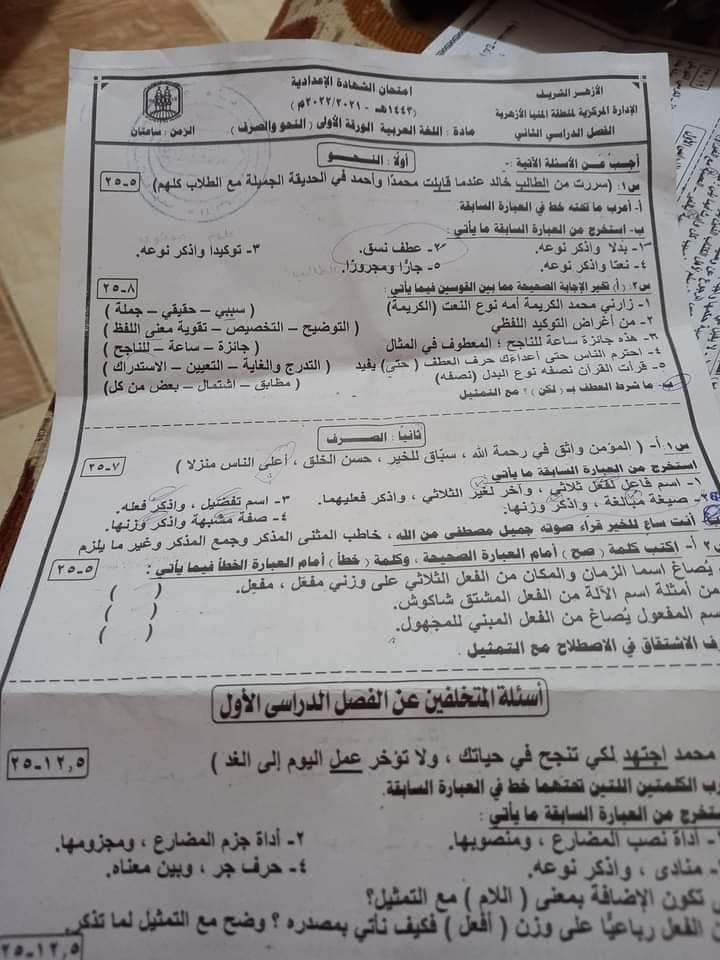 الأزهر الشريف
الإدارة المركزية لمنطقة المنيا الأزهرية
الفصل الدراسي الثاني
امتحان الشهادة الإعدادية
(١٤٤٣هـ - ٢٠٢١/٢٠٢٢م)
مادة : اللغة العربية الورقة الأولى ( النحو والصرف )
الزمن: ساعتان
أجب عن الأسئلة الآتية :-
أولًا : النحو
س١: (سررت من الطالب خالد عندما قابلت محمدًا وأحمد في الحديقة الجميلة مع الطلاب كلهم) ٥-٢٥
أ- أعرب ما تحته خط في العبارة السابقة.
ب- استخرج من العبارة السابقة ما يأتي :
١- بدلا واذكر نوعه. ٢- عطف نسق. ٣- توكيدا واذكر نوعه.
٤- نعتا واذكر نوعه. ٥- جارًا ومجرورًا.
س٢: (أ) تخير الإجابة الصحيحة مما بين القوسين فيما يأتي : ٨-٢٥
١- زارني محمد الكريمة أمه نوع النعت (الكريمة) ( سببي – حقيقي – جملة )
٢- من أغراض التوكيد اللفظي ( التوضيح – التخصيص – تقوية معنى اللفظ )
٣- هذه جائزة ساعة للناجح ؛ المعطوف في المثال ( جائزة – ساعة – للناجح )
٤- احترم الناس حتى أعداءك حرف العطف (حتى) يفيد ( التدرج والغاية – التعيين – الاستدراك )
٥- قرأت القرآن نصفه نوع البدل (نصفه) ( مطابق – اشتمال – بعض من كل)
ب- ما شرط العطف بـ ( لكن ) ؟ مع التمثيل
ثانيًا : الصرف
س١: أ- ( المؤمن واثق في رحمة الله ، سبّاق للخير ، حسن الخلق ، أعلى الناس منزلا ) ٧-٢٥
استخرج من العبارة السابقة ما يأتي :
١- اسم فاعل لفعل ثلاثي ، وآخر لغير الثلاثي ، واذكر فعليهما.
٢- صيغة مبالغة ، واذكر وزنها. ٣- اسم تفضيل ، واذكر فعله.
٤- صفة مشبهة واذكر وزنها.
أنت ساع للخير قراء صوته جميل مصطفى من الله ، خاطب المثنى المذكر وجمع المذكر وغير ما يلزم
س٢ أ- اكتب كلمة ( صح ) أمام العبارة الصحيحة ، وكلمة ( خطأ ) أمام العبارة الخطأ فيما يأتي : ٥-٢٥
يُصاغ اسما الزمان والمكان من الفعل الثلاثي على وزني مفعَل ، مفعِل. ( )
من أمثلة اسم الآلة من الفعل المشتق شاكوش. ( )
اسم المفعول يُصاغ من الفعل المبني للمجهول. ( )
الاشتقاق في الاصطلاح مع التمثيل
أسئلة المتخلفين عن الفصل الدراسى الأول
محمد اجتهد لكي تنجح في حياتك ، ولا تؤخر عمل اليوم إلى الغد ) ١٢,٥-٢٥
الكلمتين اللتين تحتهما خط في العبارة السابقة.
استخرج من العبارة السابقة ما يأتي :
أداة نصب المضارع ، ومنصوبها. ٢- أداة جزم المضارع ، ومجزومها.
منادى ، واذكر نوعه. ٤- حرف جر ، وبين معناه.
تكون الإضافة بمعنى ( اللام ) مع التمثيل؟
الفعل رباعيًا على وزن ( أفعل ) فكيف نأتي بمصدره ؟ وضح مع التمثيل لما تذكر.
١٢,٥-٢٥